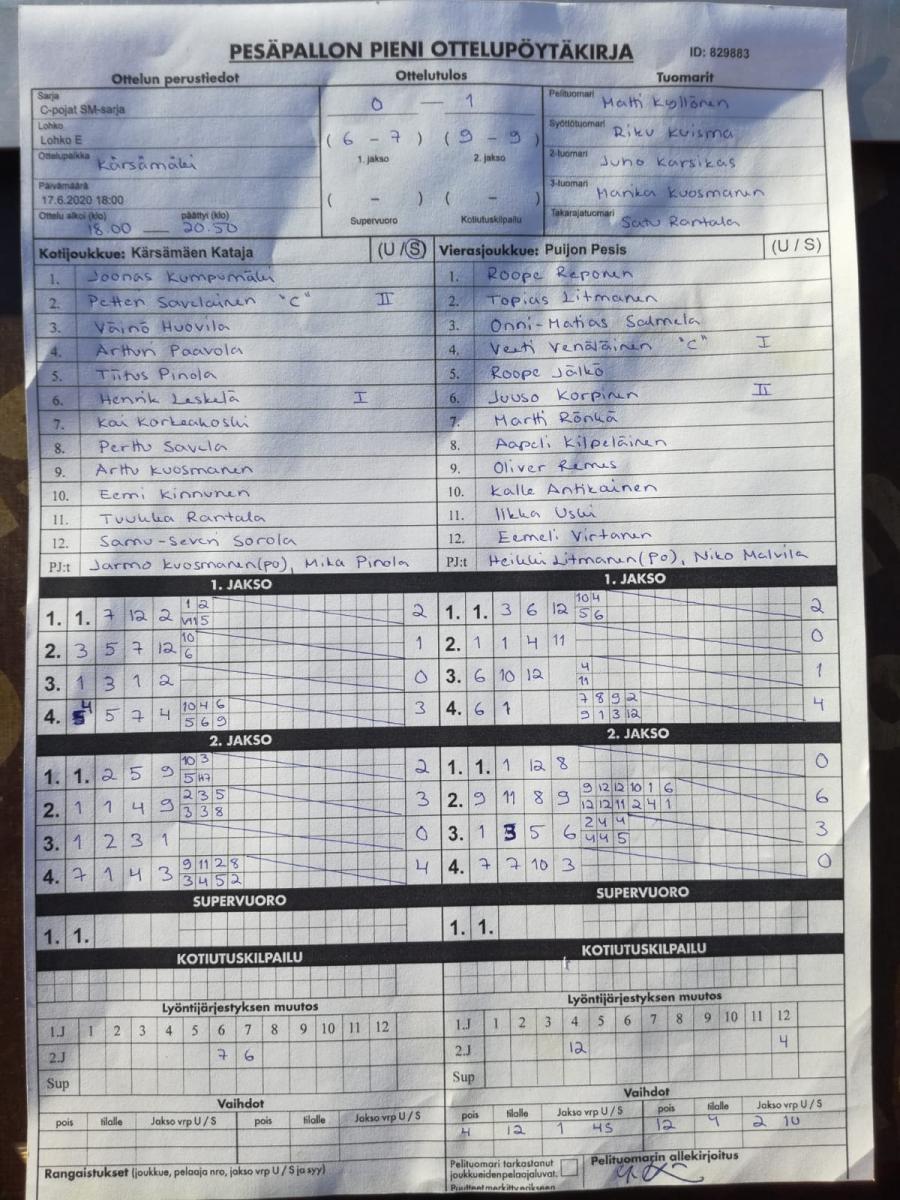 PESÄPALLON PIENI OTTELUPÖYTÄKIRJA ID: 829883
Ottelun perustiedot Ottelutulos Tuomarit
Sarja
C-pojat SM-sarja
Lohko
Lohko E
Ottelupaikka Kärsämäki
Päivämäärä
17.6.2020 18:00
Ottelu alkoi (klo) päättyi (klo)
18.00 — 20.50
0 — 1
( 6 - 7 ) ( 9 - 9 )
1. jakso 2. jakso
( - ) ( - )
Supervuoro Kotiutuskilpailu
Pelituomari Matti Kyllönen
Syöttötuomari Riku Kuisma
2-tuomari Juho Karsikas
3-tuomari Marika Kuosmanen
Takarajatuomari Satu Rantala
Kotijoukkue: Kärsämäen Kataja (U / S) Vierasjoukkue: Puijon Pesis (U / S)
1. Joonas Kumpumäki 1. Roope Reponen
2. Petteri Savelainen "C" II 2. Topias Litmanen
3. Väinö Huovila 3. Onni-Matias Salmela
4. Artturi Paavola 4. Veeti Venäläinen "C" I
5. Tiitus Pinola 5. Roope Jälkö
6. Henrik Leskelä I 6. Juuso Korpinen II
7. Kai Korkeakoski 7. Martti Rönkä
8. Perttu Savela 8. Aapeli Kilpeläinen
9. Arttu Kuosmanen 9. Oliver Remes
10. Eemi Kinnunen 10. Kalle Antikainen
11. Tuukka Rantala 11. Ilkka Uski
12. Samu-Severi Sorola 12. Eemeli Virtanen
PJ:t Jarmo Kuosmanen(po), Mika Pinola PJ:t Heikki Litmanen(Po), Niko Malvila
1. JAKSO 1. JAKSO
1. 1. 7 12 2 1 2 2 1. 1. 3 6 12 10 4 2
5 5 6
2. 3 5 7 12 10 1 2. 1 1 4 11 0
6
3. 1 3 1 2 0 3. 6 10 12 4 1
11
4. 4 5 7 4 10 4 6 3 4. 6 1 7 8 9 2 4
5 6 9 9 1 3 12
2. JAKSO 2. JAKSO
1. 1. 2 5 9 10 3 2 1. 1. 1 12 8 0
5
2. 1 1 4 9 2 3 5 3 2. 9 11 8 9 9 12 12 10 1 6 6
3 3 8 12 12 11 2 4 1
3. 1 2 3 1 0 3. 1 3 5 6 2 4 4 3
4 4 5
4. 7 1 4 3 9 11 2 8 4 4. 7 7 10 3 0
3 4 5 2
SUPERVUORO SUPERVUORO
1. 1. 1. 1.
KOTIUTUSKILPAILU KOTIUTUSKILPAILU
Lyöntijärjestyksen muutos Lyöntijärjestyksen muutos
1.J 1 2 3 4 5 6 7 8 9 10 11 12 1.J 1 2 3 4 5 6 7 8 9 10 11 12
2.J 7 6 2.J 12 4
Sup Sup
Vaihdot Vaihdot
pois tilalle Jakso vrp U / S pois tilalle Jakso vrp U / S pois tilalle Jakso vrp U / S pois tilalle Jakso vrp U / S
4 12 1 4S 12 4 2 1U
Rangaistukset (joukkue, pelaaja nro, jakso vrp U / S ja syy) Pelituomari tarkastanut Pelituomarin allekirjoitus
joukkueidenpelaajaluvat.